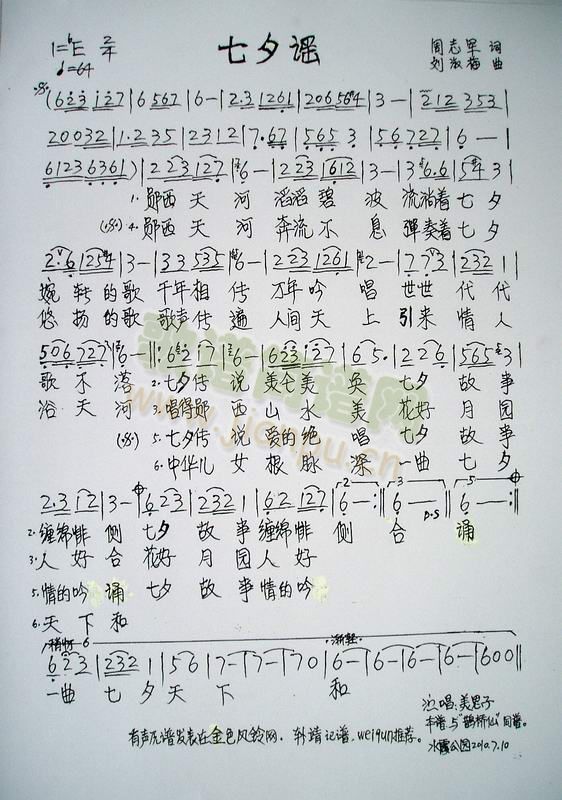 1=♭E 2/4
七夕谣
周志军 词
♩=64
刘淑梅 曲
(6 2 3 1 2 7 | 6 5 6 7 | 6 — | 2·3 1 2 6 1 | 2 0 6 5 6 4 | 3 — | 2 1 2 3 5 3 |
2 0 0 3 2 | 1·2 3 5 | 2 3 1 2 | 7·6 7 | 5 6 5 3 | 5 6 7 2 7 | 6 — |
6 1 2 3 6 3 6 1) | 2 2 3 1 2 7 | 6 — | 2 2 3 6 1 2 | 3 — | 3 6·6 | 5 4 3 |
1. 郧西天河滔滔碧波流淌着七夕
(𝄋) 4. 郧西天河奔流不息弹奏着七夕
2·6 1 2 5 4 | 3 — | 3 3 5 3 5 | 6 — | 2 2 3 1 2 6 1 | 2 — | 7 7 3 | 2 3 2 1 |
婉转的歌千年相传万年吟唱世世代代
悠扬的歌歌声传遍人间天上引来情人
5 0 6 7 2 7 | 6 — ‖: 6 2 1 7 | 6 — | 6 2 3 1 2 7 | 6 5· | 2 2 6 | 5 6 5 3 |
歌不落 2. 七夕传说美仑美英七夕故事
浴天河 3. 唱得郧西山水美花好月园
(𝄋) 5. 七夕传说爱的绝唱七夕故事
6. 中华儿女根脉深一曲七夕
2·3 1 2 | 3 — | 6 2 3 | 2 3 2 1 | 6 2 1 2 7 | 6 — :‖ 6 — ‖ 6 — ‖
2. 缠绵悱侧七夕故事缠绵悱侧合诵
3. 人好合花好月园人好
5. 情的吟诵七夕故事情的吟
6. 天下和
稍慢 6 渐轻
6 2 3 | 2 3 2 1 | 5 6 | 7 — | 7 — | 7 0 | 6 — | 6 — | 6 — | 6 — | 6 0 0 ‖
一曲七夕天下和
演唱:美思子
本谱与"鹊桥仙"同谱。
有声无谱发表在金色风铃网. 韩靖记谱, weiqun推荐。
水露公园2010.7.10
歌谱简谱网
www.jianpu.cn